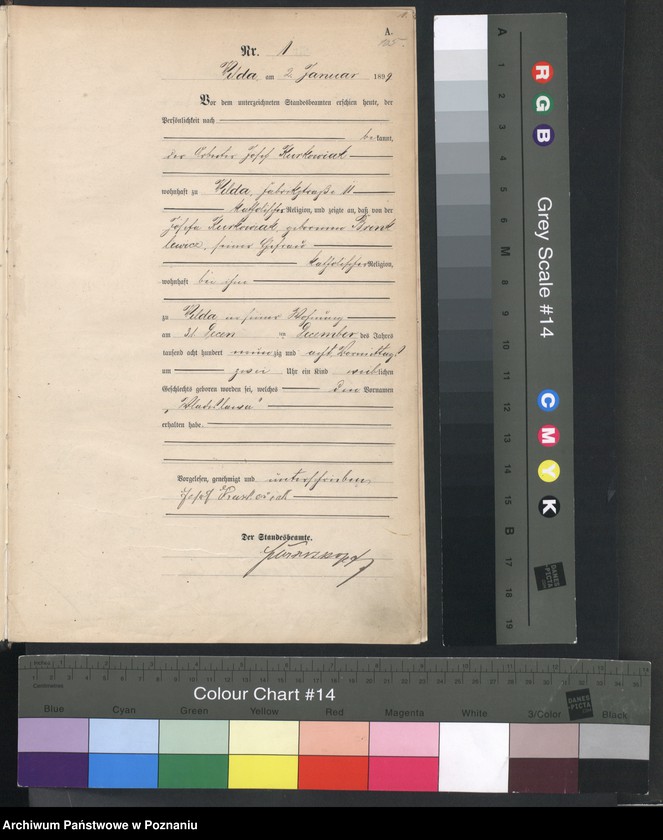 A.
Nr. 1
Wilda am 2 Januar 1899
Vor dem unterzeichneten Standesbeamten erschien heute, der
Persönlichkeit nach
bekannt,
der Arbeiter Josef Kurkowiak
wohnhaft zu Wilda, Fabrikstraße 11
katholischer Religion, und zeigte an, daß von der
Josefa Kurkowiak, geborenen
seiner Ehefrau
katholischer Religion,
wohnhaft bei ihm
zu Wilda in seiner Wohnung
am 31 December des Jahres
tausend acht hundert neunzig und acht Vormittags
um zwei Uhr ein Kind weiblichen
Geschlechts geboren worden sei, welches den Vornamen
„Wladislawa“
erhalten habe.
Vorgelesen, genehmigt und unterschrieben
Josef
Der Standesbeamte.
Grey Scale #14
R
G
B
C
M
Y
K
A 1 2 3 4 5 6 M 8 9 10 11 12 13 14 15 B 17 18 19
DANES
-PICTA
.COM
Colour Chart #14
Centimetres
Blue Cyan Green Yellow Red Magenta White 3/Color Black
Archiwum Państwowe w Poznaniu